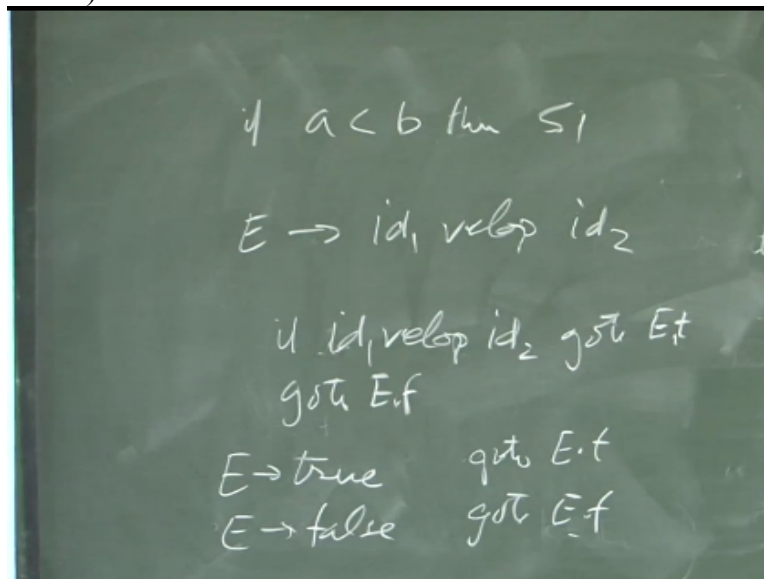 if a < b then S1
E → id₁ relop id₂
if id₁ relop id₂ goto E.t
goto E.f
E → true goto E.t
E → false goto E.f